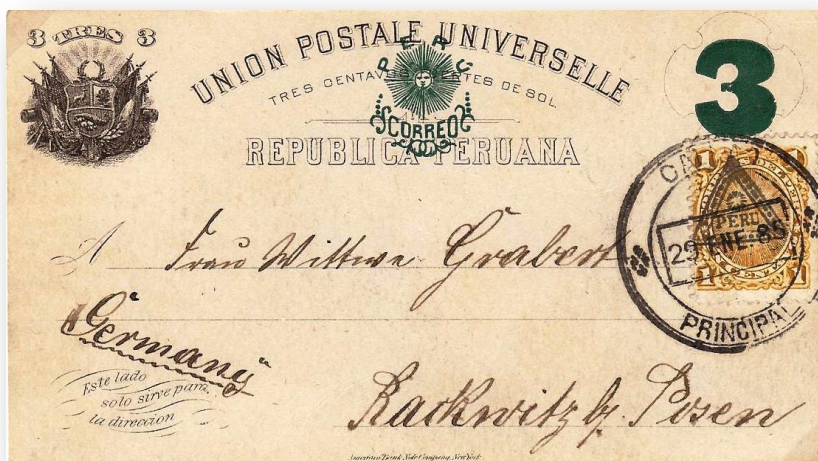 3 TRES 3
UNION POSTALE UNIVERSELLE
PERU
3
TRES CENTAVOS DE SOL
CORREOS
REPUBLICA PERUANA
1
PERU
29 ENE 86
1 1
PRINCIPAL
A Frau Wittwe Grabert
"Germany"
Este lado
solo sirve para.
la direccion
Rackwitz bz. Posen
American Bank Note Company, New York